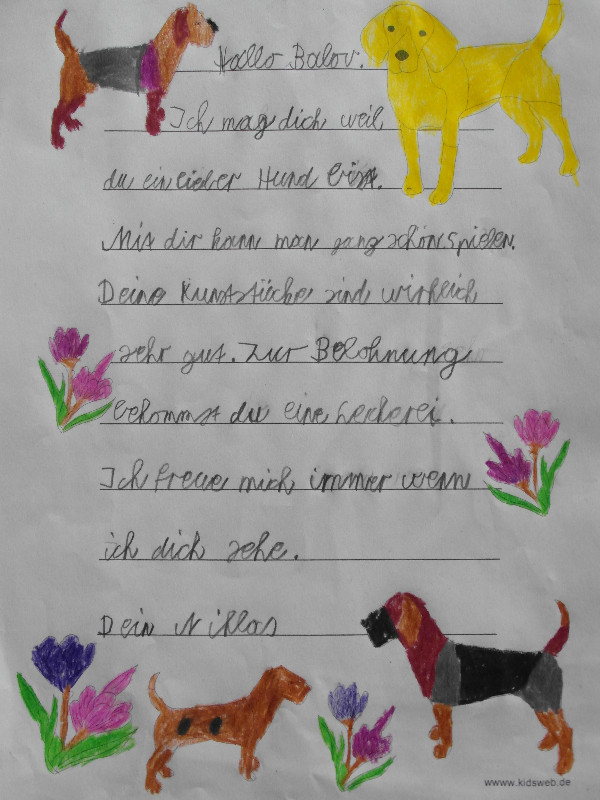 Hallo Balov.
Ich mag dich weil
du ein lieber Hund bist.
Mit dir kann man ganz schön spielen.
Deine Kunststücke sind wirklich
sehr gut. Zur Belohnung
bekommst du eine Leckerei.
Ich freue mich immer wenn
ich dich sehe.
Dein Niklas
wwww.kidsweb.de